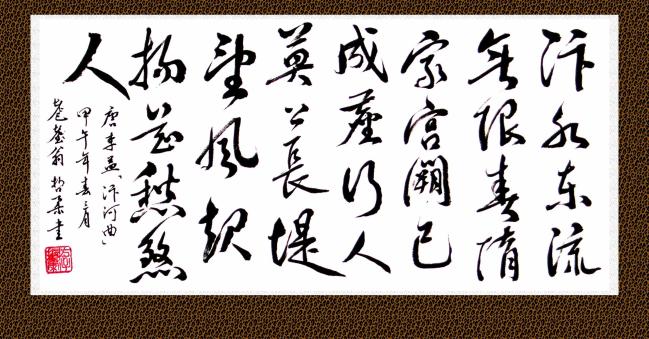 汴水东流
無限春隋
家宫闕已
成塵行人
莫上長堤
望風起
楊花愁煞
人
唐李益「汴河曲」
甲午年春月
翁 書